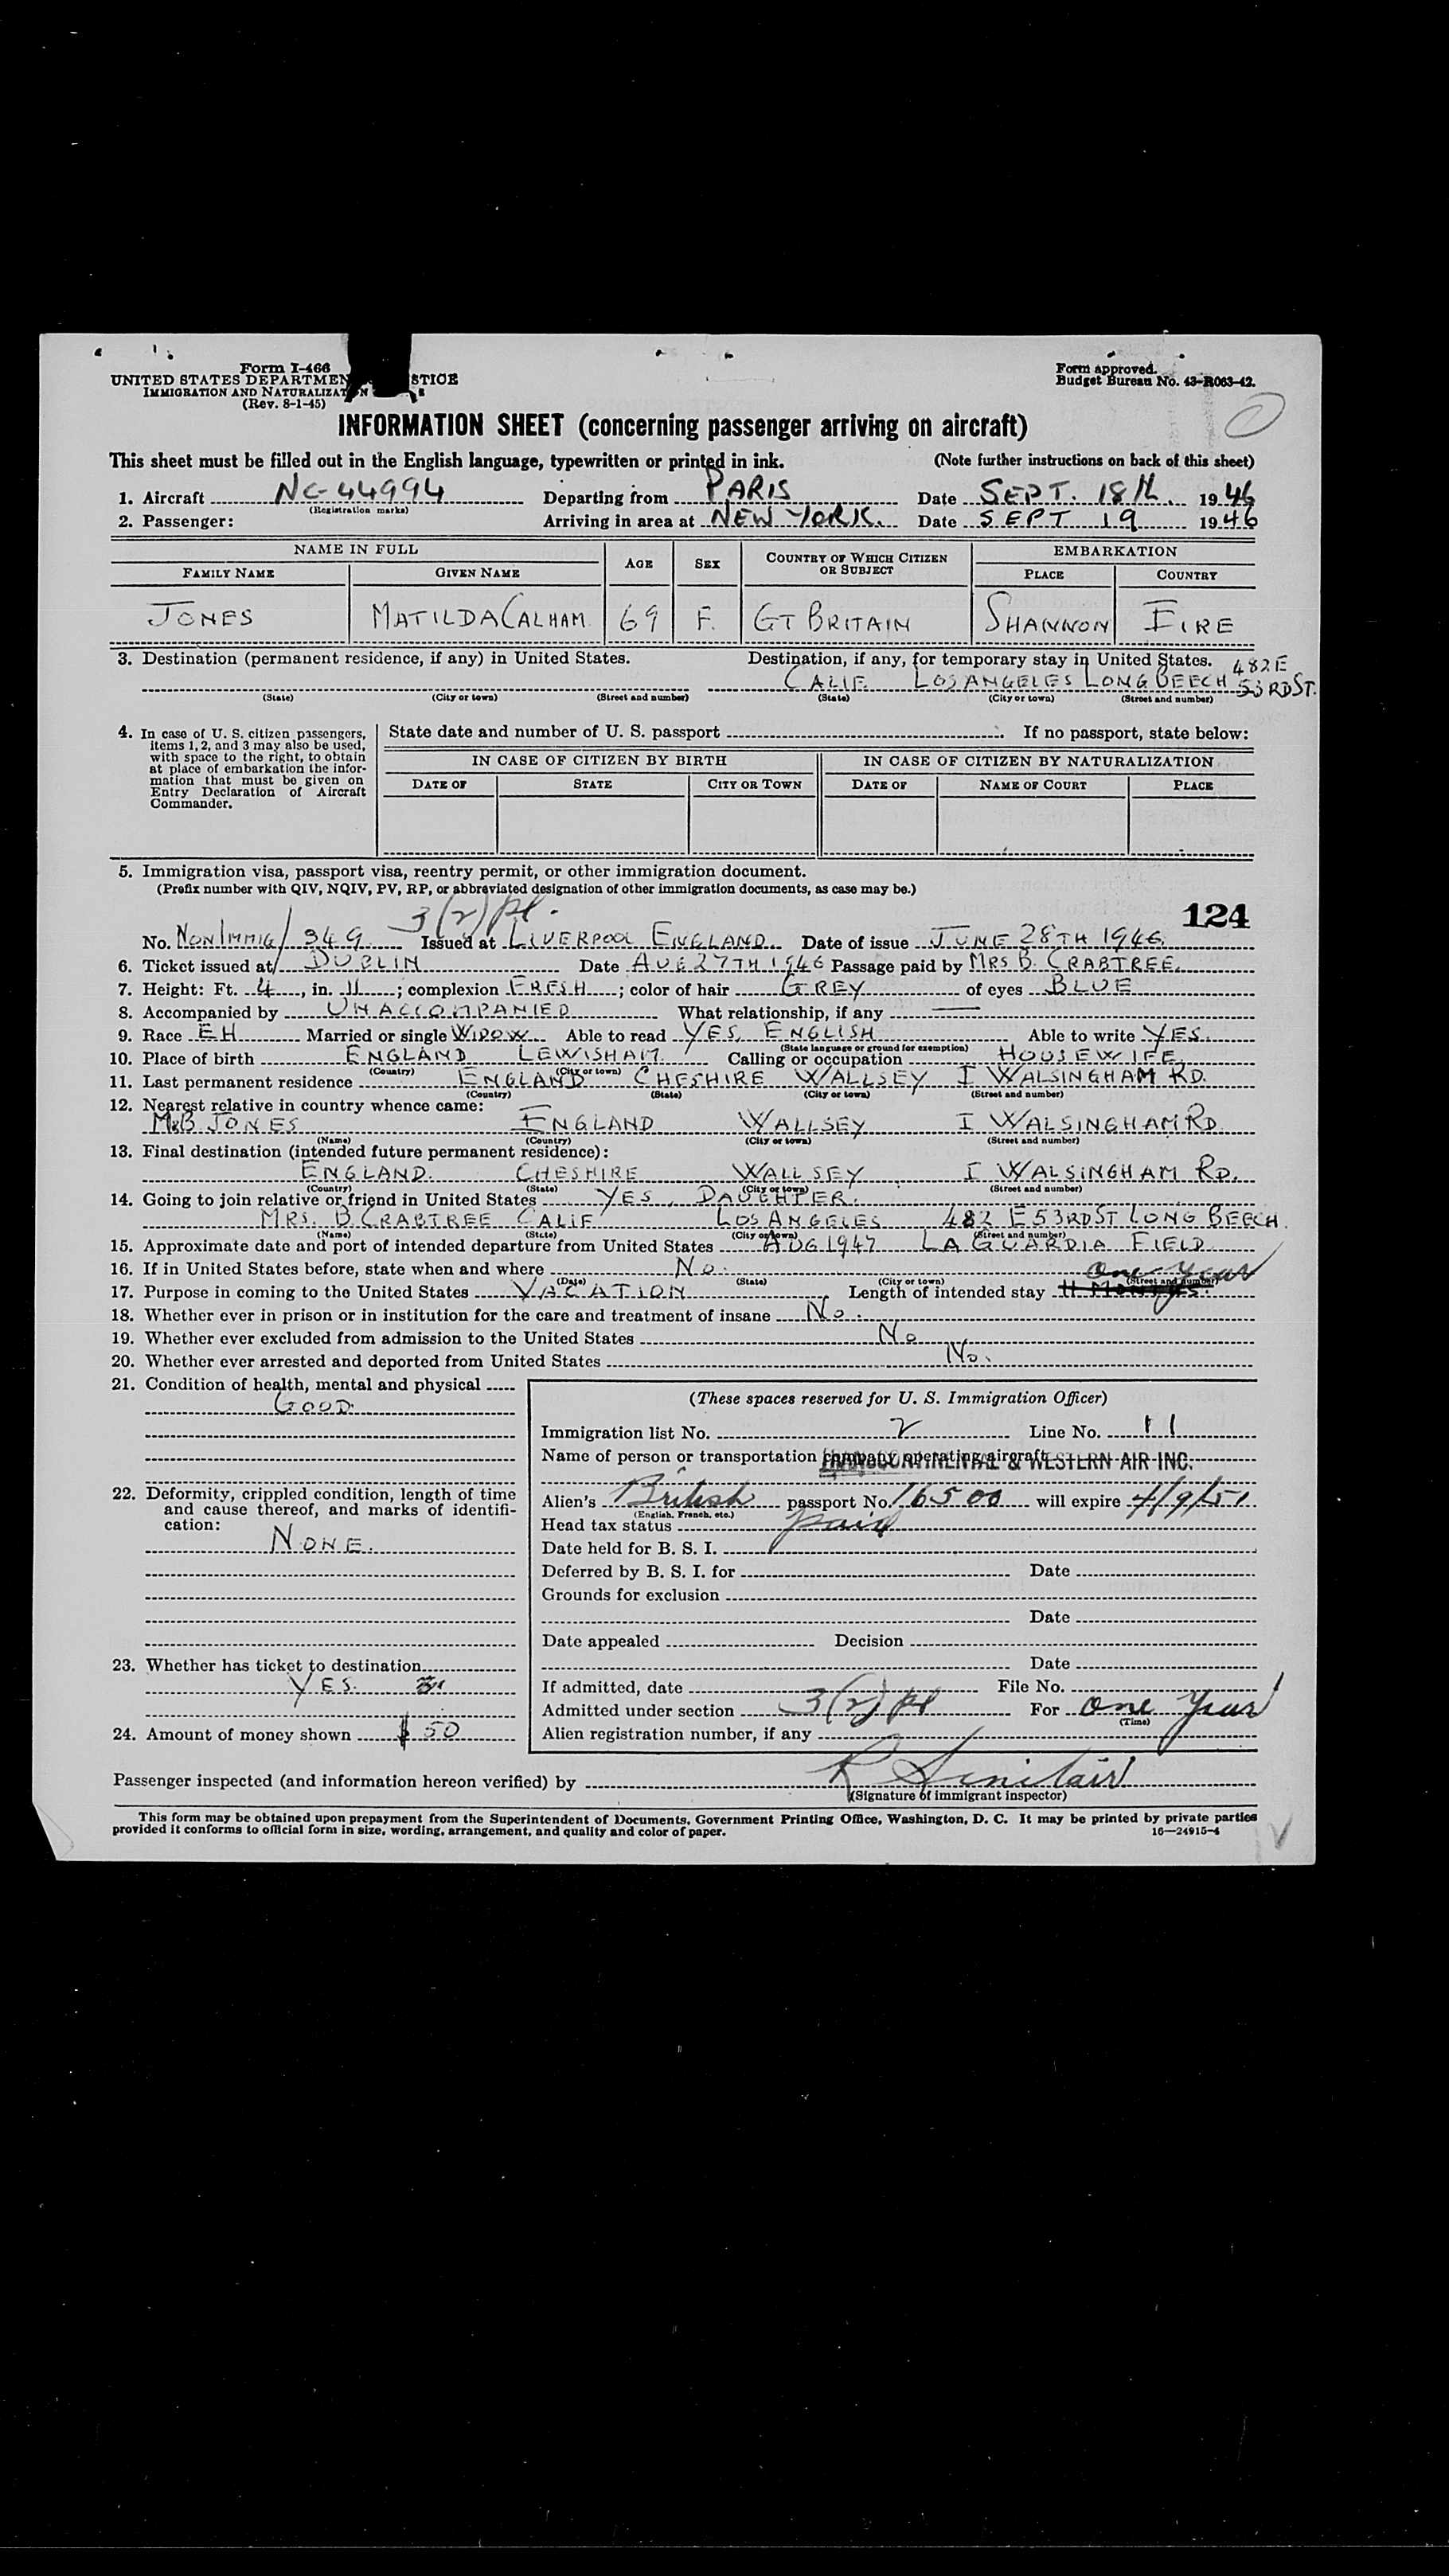 Form I-466
UNITED STATES DEPARTMEN STICE
IMMIGRATION AND NATURALIZAT
(Rev. 8-1-45)
Form approved.
Budget Bureau No. 43-R063-42.
INFORMATION SHEET (concerning passenger arriving on aircraft)
This sheet must be filled out in the English language, typewritten or printed in ink. (Note further instructions on back of this sheet)
1. Aircraft NC 44994 Departing from PARIS Date SEPT. 18th. 1946
(Registration marks)
2. Passenger: Arriving in area at NEW YORK. Date SEPT 19 1946
NAME IN FULL AGE SEX COUNTRY OF WHICH CITIZEN OR SUBJECT EMBARKATION
FAMILY NAME GIVEN NAME PLACE COUNTRY
JONES MATILDA CALHAM 69 F. GT BRITAIN SHANNON EIRE
3. Destination (permanent residence, if any) in United States. Destination, if any, for temporary stay in United States. 482 E
CALIF. LOS ANGELES LONG BEECH 53RD ST.
(State) (City or town) (Street and number) (State) (City or town) (Street and number)
4. In case of U. S. citizen passengers, items 1, 2, and 3 may also be used, with space to the right, to obtain at place of embarkation the information that must be given on Entry Declaration of Aircraft Commander.
State date and number of U. S. passport If no passport, state below:
IN CASE OF CITIZEN BY BIRTH IN CASE OF CITIZEN BY NATURALIZATION
DATE OF STATE CITY OR TOWN DATE OF NAME OF COURT PLACE
5. Immigration visa, passport visa, reentry permit, or other immigration document.
(Prefix number with QIV, NQIV, PV, RP, or abbreviated designation of other immigration documents, as case may be.)
3(2) pl. 124
No. NON IMMIG/ 349 Issued at LIVERPOOL ENGLAND Date of issue JUNE 28TH 1946
6. Ticket issued at DUBLIN Date AUG 27TH 1946 Passage paid by MRS B. CRABTREE.
7. Height: Ft. 4, in. 11; complexion FRESH; color of hair GREY of eyes BLUE
8. Accompanied by UNACCOMPANIED What relationship, if any —
9. Race EH Married or single WIDOW Able to read YES, ENGLISH Able to write YES.
(State language or ground for exemption)
10. Place of birth ENGLAND LEWISHAM. Calling or occupation HOUSEWIFE
(Country) (City or town)
11. Last permanent residence ENGLAND CHESHIRE WALLSEY I WALSINGHAM RD.
(Country) (State) (City or town) (Street and number)
12. Nearest relative in country whence came:
B JONES ENGLAND WALLSEY I WALSINGHAM RD
(Name) (Country) (City or town) (Street and number)
13. Final destination (intended future permanent residence):
ENGLAND. CHESHIRE WALLSEY I WALSINGHAM RD.
(Country) (State) (City or town) (Street and number)
14. Going to join relative or friend in United States YES, DAUGHTER.
MRS. B. CRABTREE CALIF LOS ANGELES 482 E 53RD ST LONG BEECH.
(Name) (State) (City or town) (Street and number)
15. Approximate date and port of intended departure from United States AUG 1947 LA GUARDIA FIELD
16. If in United States before, state when and where No.
(Date) (State) (City or town) (Street and number)
one year
17. Purpose in coming to the United States VACATION Length of intended stay 11 MONTHS.
18. Whether ever in prison or in institution for the care and treatment of insane No.
19. Whether ever excluded from admission to the United States No
20. Whether ever arrested and deported from United States No.
21. Condition of health, mental and physical
GOOD
22. Deformity, crippled condition, length of time and cause thereof, and marks of identification:
NONE.
23. Whether has ticket to destination
YES.
24. Amount of money shown $ 50
(These spaces reserved for U. S. Immigration Officer)
Immigration list No. 2 Line No. 11
Name of person or transportation company operating aircraft
TRANSCONTINENTAL & WESTERN AIR INC.
Alien's British passport No. 16500 will expire 4/9/51
(English, French, etc.)
Head tax status paid
Date held for B. S. I.
Deferred by B. S. I. for Date
Grounds for exclusion
Date
Date appealed Decision
Date
If admitted, date File No.
Admitted under section 3(2) pl For one year
(Time)
Alien registration number, if any
Passenger inspected (and information hereon verified) by R Sinclair
(Signature of immigrant inspector)
This form may be obtained upon prepayment from the Superintendent of Documents, Government Printing Office, Washington, D. C. It may be printed by private parties
provided it conforms to official form in size, wording, arrangement, and quality and color of paper. 16—24915-4